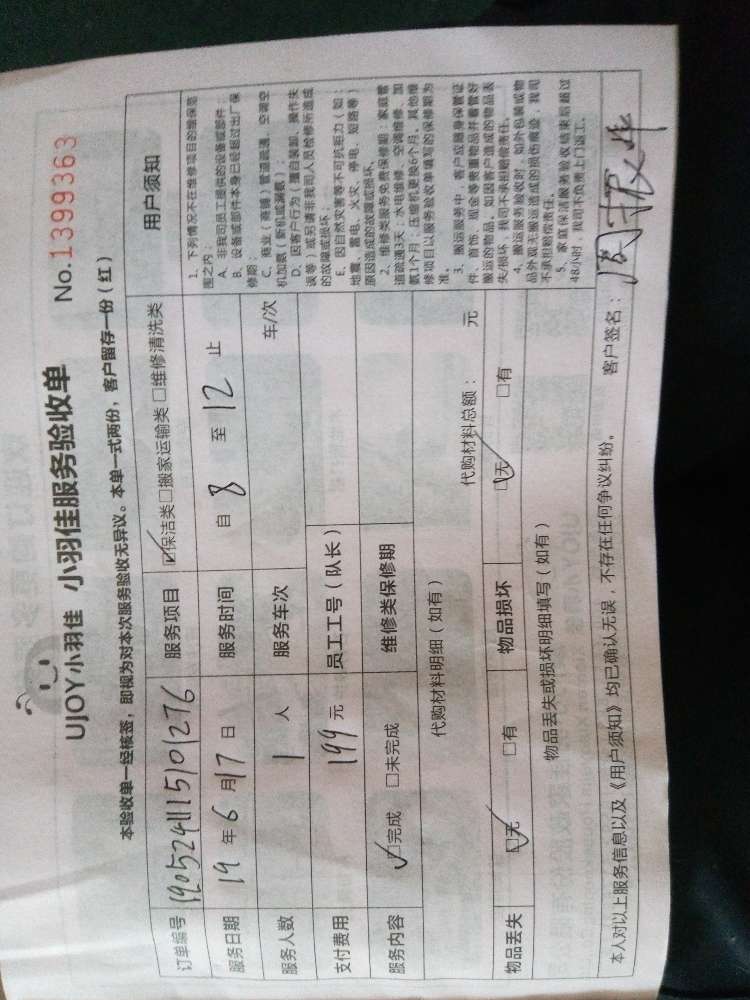 UJOY小羽佳 小羽佳服务验收单 No.1399363
本验收单一经核签，即视为对本次服务验收无异议。本单一式两份，客户留存一份（红）
订单编号 1905241115101276 服务项目 ☑保洁类□搬家运输类 □维修清洗类
服务日期 19 年 6 月 17 日 服务时间 自 8 至 12 止
服务人数 1 人 服务车次 车/次
支付费用 199 元 员工工号（队长）
服务内容 ☑完成 □未完成 维修类保修期
代购材料明细（如有） 代购材料总额： 元
物品丢失 ☑无 □有 物品损坏 ☑无 □有
物品丢失或损坏明细填写（如有）
用户须知
1、下列情况不在维修项目的维保范
围之内：
A、非我司员工提供的设备或部件；
B、设备或部件本身已经超过出厂保
修期；
C、商业（商铺）管道疏通、空调空
机加氨（新机或漏氨）；
D、因客户行为（擅自装卸、操作失
误等）或另请非我司人员检修所造成
的故障或损坏；
E、因自然灾害等不可抗拒力（如：
地震、雷电、火灾、停电、短路等）
原因造成的故障或损坏。
2、维修类服务免费保修期：家庭管
道疏通3天；水电维修、空调维修、加
氨1个月；压缩机更换6个月。其他维
修项目以服务验收单填写的保修期为
准。
3、搬运服务中，客户应随身保管证
件、首饰、现金等贵重物品并看管好
搬运的物品，如因客户造成的物品丢
失/损坏，我司不承担赔偿责任。
4、搬运服务验收时，如外包装或物
品外观无搬运造成的损伤痕迹，我司
不承担赔偿责任。
5、家庭保洁服务验收结束后超过
48小时，我司不负责上门返工。
本人对以上服务信息以及《用户须知》均已确认无误，不存在任何争议纠纷。 客户签名：周振华